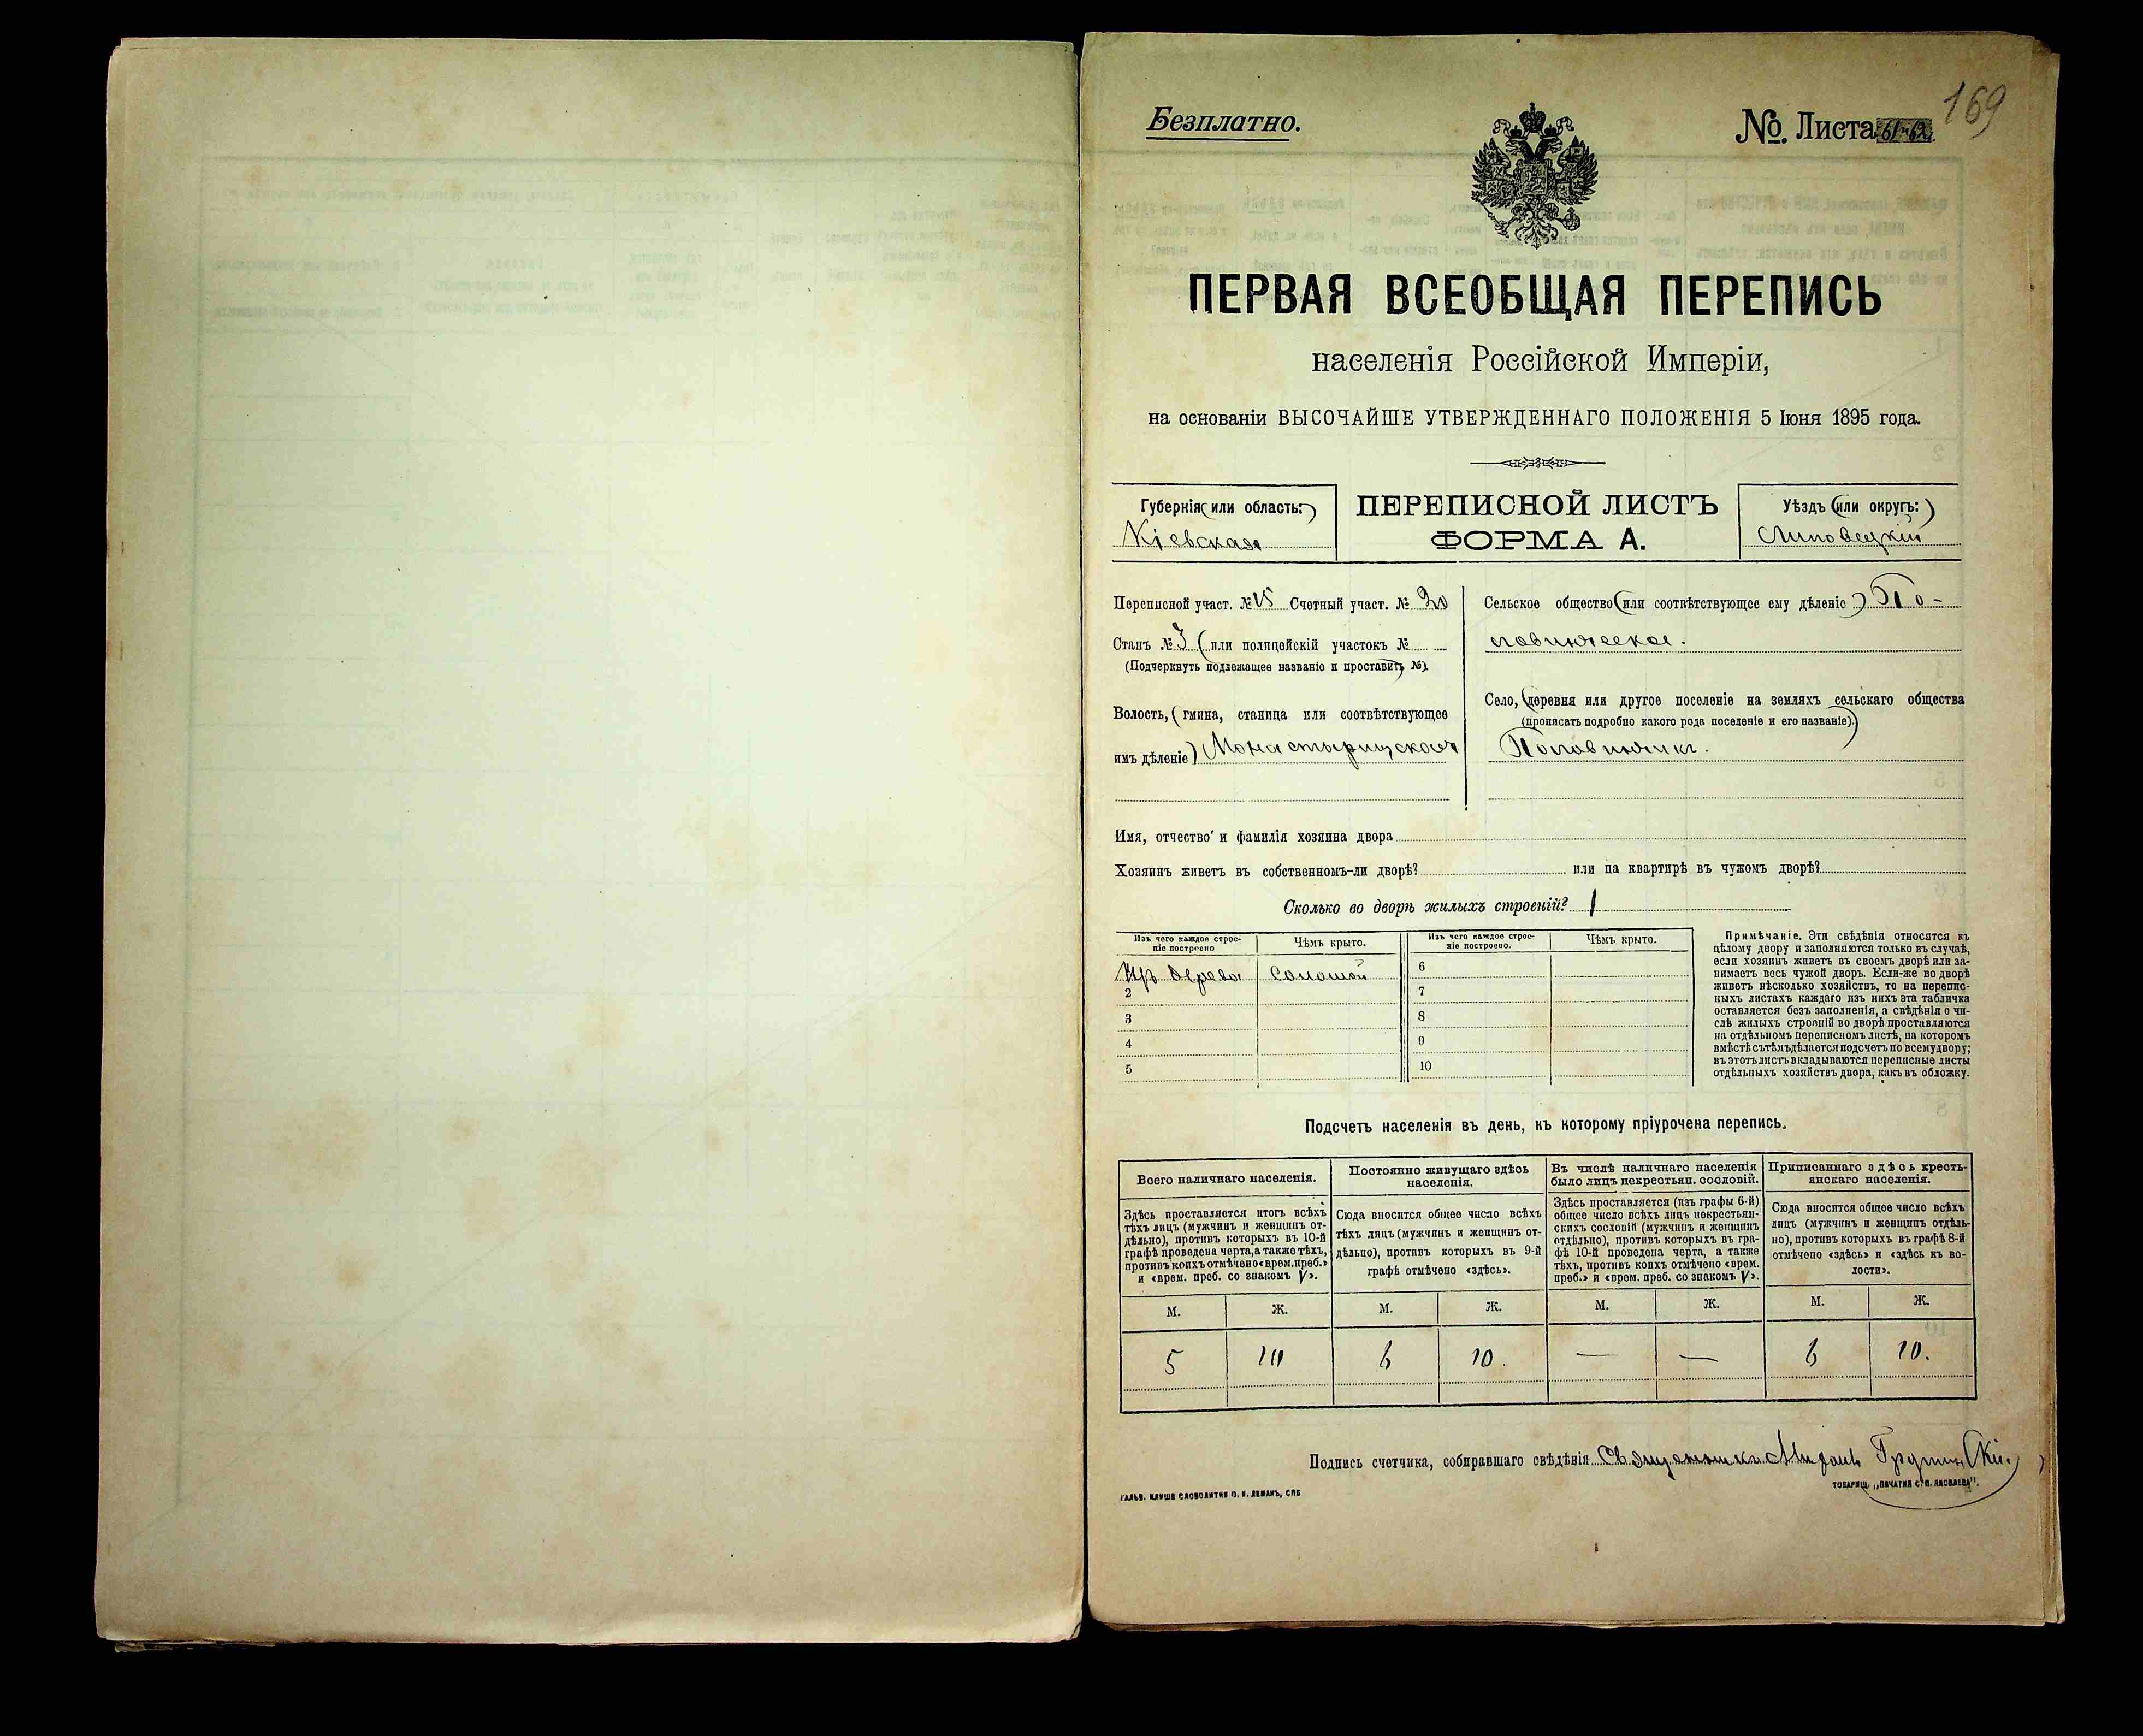 169
Безплатно.
№. Листа 61-62
ПЕРВАЯ ВСЕОБЩАЯ ПЕРЕПИСЬ
населенія Россійской Имперіи,
на основаніи ВЫСОЧАЙШЕ УТВЕРЖДЕННАГО ПОЛОЖЕНІЯ 5 Іюня 1895 года.
Губернія (или область:)
Кіевская
ПЕРЕПИСНОЙ ЛИСТЪ
ФОРМА А.
Уѣздъ (или округъ:)
Липовецкій
Переписной участ. № 15 Счетный участ. №
Станъ № 3 (или полицейскій участокъ №
(Подчеркнуть подлежащее названіе и проставить №).
Волость, (гмина, станица или соотвѣтствующее
имъ дѣленіе) Монастырищская
Сельское общество (или соотвѣтствующее ему дѣленіе) По-
повинчское.
Село, (деревня или другое поселеніе на земляхъ сельскаго общества
(прописать подробно какого рода поселеніе и его названіе).)
Имя, отчество и фамилія хозяина двора
Хозяинъ живетъ въ собственномъ-ли дворѣ? или на квартирѣ въ чужомъ дворѣ?
Сколько во дворѣ жилыхъ строеній? 1
Изъ чего каждое строе-
ніе построено
Чѣмъ крыто.
Изъ чего каждое строе-
ніе построено.
Чѣмъ крыто.
Изъ дерева соломой 6
2 7
3 8
4 9
5 10
Примѣчаніе. Эти свѣдѣнія относятся къ
цѣлому двору и заполняются только въ случаѣ,
если хозяинъ живетъ въ своемъ дворѣ или за-
нимаетъ весь чужой дворъ. Если-же во дворѣ
живетъ нѣсколько хозяйствъ, то на перепис-
ныхъ листахъ каждаго изъ нихъ эта табличка
оставляется безъ заполненія, а свѣдѣнія о чи-
слѣ жилыхъ строеній во дворѣ проставляются
на отдѣльномъ переписномъ листѣ, на которомъ
вмѣстѣ съ тѣмъ дѣлается подсчетъ по всему двору;
въ этотъ листъ вкладываются переписные листы
отдѣльныхъ хозяйствъ двора, какъ въ обложку.
Подсчетъ населенія въ день, къ которому пріурочена перепись.
Всего наличнаго населенія.
Здѣсь проставляется итогъ всѣхъ
тѣхъ лицъ (мужчинъ и женщинъ от-
дѣльно), противъ которыхъ въ 10-й
графѣ проведена черта, а также тѣхъ,
противъ коихъ отмѣчено «врем. преб.»
и «врем. преб. со знакомъ V».
Постоянно живущаго здѣсь
населенія.
Сюда вносится общее число всѣхъ
тѣхъ лицъ (мужчинъ и женщинъ от-
дѣльно), противъ которыхъ въ 9-й
графѣ отмѣчено «здѣсь».
Въ числѣ наличнаго населенія
было лицъ некрестьян. сословій.
Здѣсь проставляется (изъ графы 6-й)
общее число всѣхъ лицъ некрестьян-
скихъ сословій (мужчинъ и женщинъ
отдѣльно), противъ которыхъ въ гра-
фѣ 10-й проведена черта, а также
тѣхъ, противъ коихъ отмѣчено «врем.
преб.» и «врем. преб. со знакомъ V».
Приписаннаго здѣсь кресть-
янскаго населенія.
Сюда вносится общее число всѣхъ
лицъ (мужчинъ и женщинъ отдѣль-
но), противъ которыхъ въ графѣ 8-й
отмѣчено «здѣсь» и «здѣсь къ во-
лости».
М. Ж. М. Ж. М. Ж. М. Ж.
5 10 6 10. — — 6 10.
Подпись счетчика, собиравшаго свѣдѣнія Священникъ
ГАЛЬВ. КЛИШЕ СЛОВОЛИТНИ О. И. ЛЕМАНЪ, СПБ
ТОВАРИЩ. „ПЕЧАТНЯ С. П. ЯКОВЛЕВА".